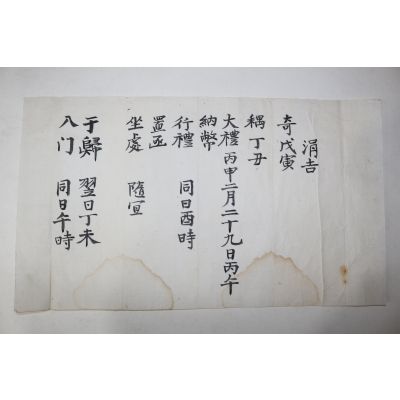 涓吉
奇戊寅
耦丁丑
大禮 丙甲二月二十九日丙午
納幣
行禮 同日酉時
置函
坐處 隨宜
于歸 翌日丁未
入门 同日午時